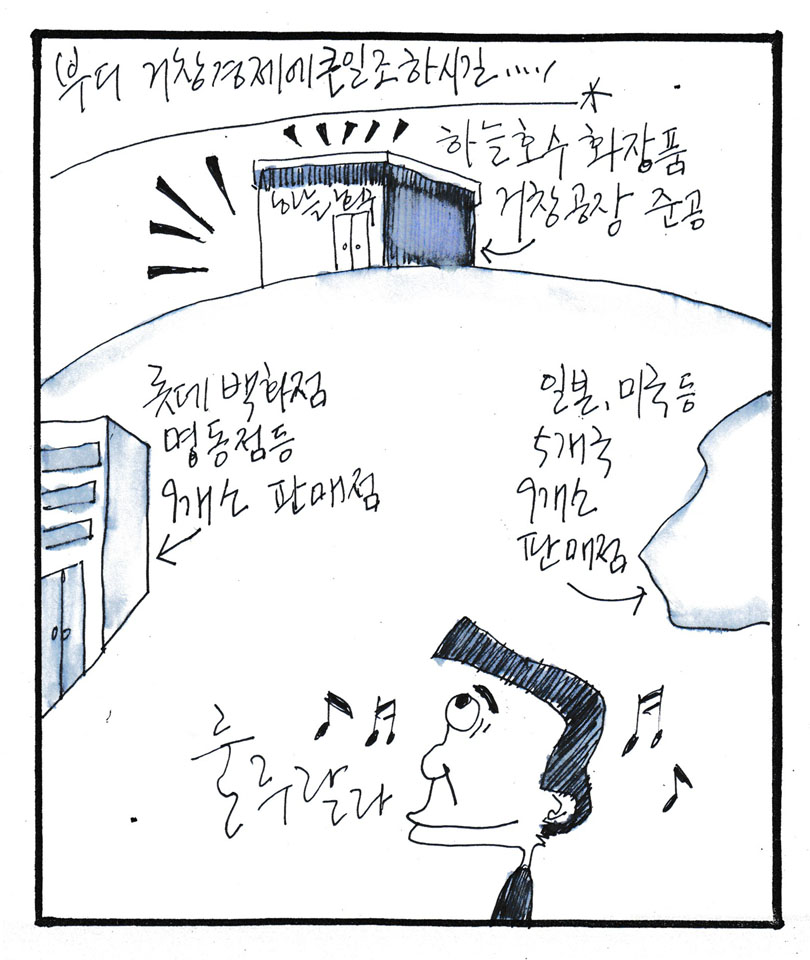 부디 거창경제에 큰 일조 하시길.....
하늘호수 화장품
거창공장 준공
하늘호수
롯데 백화점
명동점등
9개소 판매점
일본, 미국 등
5개국
9개소
판매점
룰루랄라